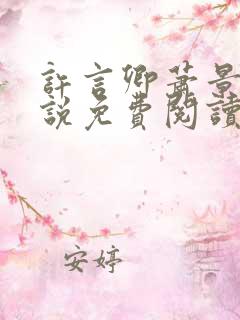 許言卿蕭景
說免費閱讀
安婷